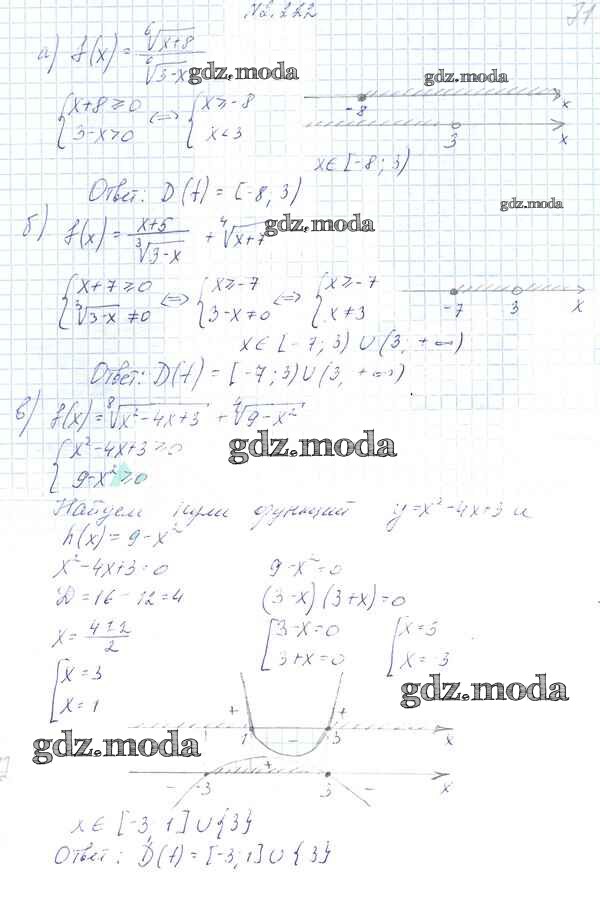 N2.222
31
а) f(x) = ⁶√(x+8) / ⁶√(3-x)
gdz.moda
gdz.moda
{ x+8 ≥ 0 ⇔ { x ≥ -8
3-x > 0 x < 3
-8 x
3 x
x ∈ [-8; 3)
Ответ: D(f) = [-8, 3)
gdz.moda
б) f(x) = (x+5) / ³√(3-x) + ⁴√(x+7)
gdz.moda
{ x+7 ≥ 0 ⇔ { x ≥ -7 ⇔ { x ≥ -7
³√(3-x) ≠ 0 3-x ≠ 0 x ≠ 3
-7 3 x
x ∈ [-7; 3) ∪ (3, +∞)
Ответ: D(f) = [-7; 3) ∪ (3, +∞)
в) f(x) = ⁸√(x²-4x+3) + ⁴√(9-x²)
{ x²-4x+3 ≥ 0
9-x² ≥ 0
gdz.moda
Найдем нули функций y = x²-4x+3 и
h(x) = 9-x²
x²-4x+3 = 0 9-x² = 0
D = 16-12 = 4 (3-x)(3+x) = 0
x = (4±2)/2 [ 3-x = 0 [ x = 3
3+x = 0 x = -3
[ x = 3
x = 1
gdz.moda
+ 1 - 3 + x
gdz.moda
- -3 + 3 - x
x ∈ [-3, 1] ∪ {3}
Ответ: D(f) = [-3; 1] ∪ {3}